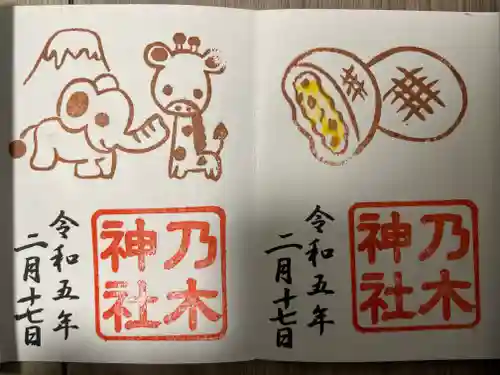 乃木
神社
令和五年
二月十七日
乃木
神社
令和五年
二月十七日